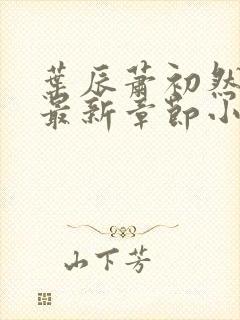 葉辰蕭初然
最新章節小
山下芳